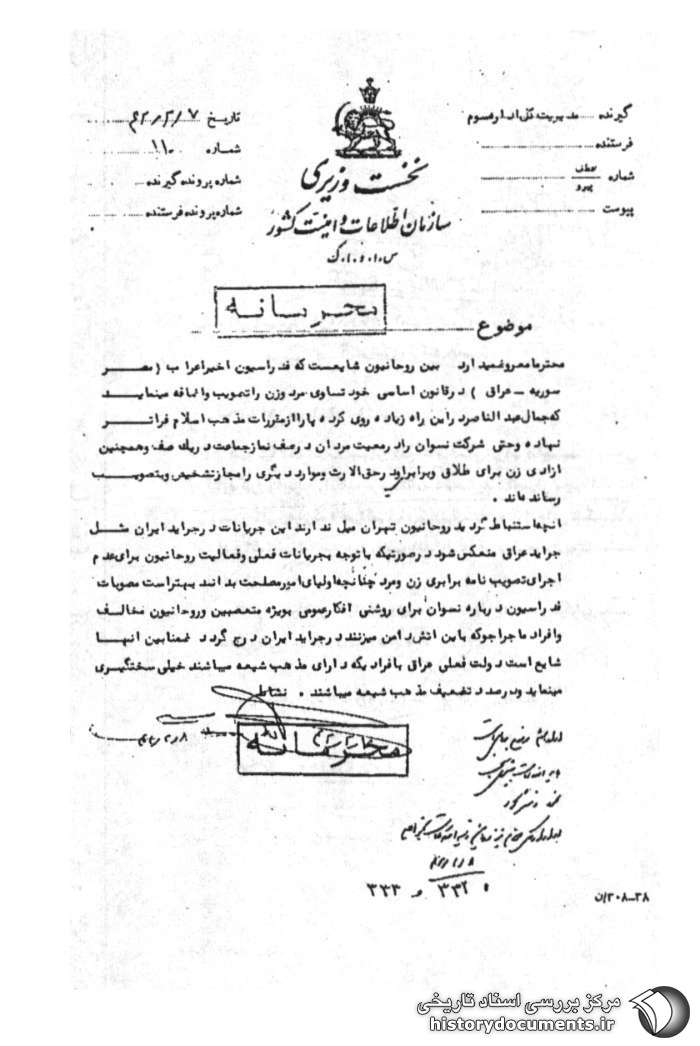 گیرنده مدیریت کل اداره سوم
فرستنده
شماره عطف پیرو
پیوست
تاریخ ۷ / ۲ / ۴۲
شماره ۱۱۰
شماره پرونده گیرنده
شماره پرونده فرستنده
نخست وزیری
سازمان اطلاعات و امنیت کشور
س.ا.و.ا.ک
محرمانه
موضوع
محترما معروض میدارد بین روحانیون شایعست که فدراسیون اخیر اعراب (مصر
سوریه – عراق ) در قانون اساسی خود تساوی مرد و زن را تصویب و اضافه مینماید
که جمال عبدالناصر در این راه زیاده روی کرده پا را از مقررات مذهب اسلام فراتر
نهاده و حتی شرکت نسوان را در معیت مردان در صف نماز جماعت در یک صف و همچنین
ازادی زن برای طلاق و برابری در حق الارث و موارد دیگری را مجاز تشخیص و بتصویب
رسانده اند .
آنچه استنباط گردید روحانیون تهران میل ندارند این جریانات در جراید ایران مثل
جراید عراق منعکس شود در صورتیکه با توجه بجریانات فعلی و فعالیت روحانیون برای عدم
اجرای تصویب نامه برابری زن و مرد چنانچه اولیای امور مصلحت بدانند بهتر است مصوبات
فدراسیون درباره نسوان برای روشنی افکار عمومی بویژه متعصبین و روحانیون مخالف
و افراد ماجراجو که باین اتش دامن میزنند در جراید ایران درج گردد ضمنا بین انها
شایع است دولت فعلی عراق با افرادیکه دارای مذهب شیعه میباشند خیلی سختگیری
مینماید و در صدد تضعیف مذهب شیعه میباشند . نشاط
محرمانه
۳۳۲ و ۳۳۳
۳۸–۲۰۸/ن
مرکز بررسی اسناد تاریخی
historydocuments.ir